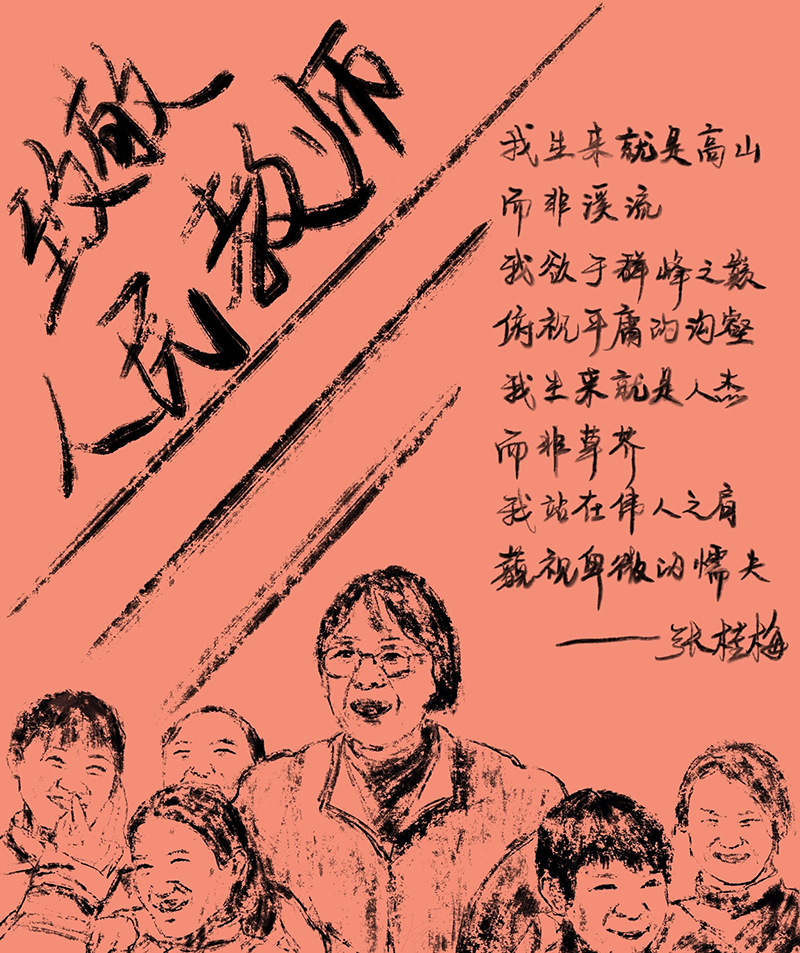 致敬
人民教师
我生来就是高山
而非溪流
我欲于群峰之巅
俯视平庸的沟壑
我生来就是人杰
而非草芥
我站在伟人之肩
藐视卑微的懦夫
——张桂梅